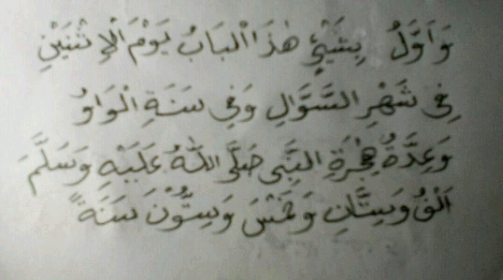 وَاَوَّلُ بِشَيْئٍ هٰذَا الْبَابُ يَوْمَ الْاِثْنَيْنِ
فِى شَهْرِ السَّوَّالِ وَفِى سَنَةِ الْوَاوُ
وَعِدَّةُ هِجْرَةِ النَّبِى صَلَّى اللهُ عَلَيْهِ وَسَلَّمَ
اَلْفُ وَسِتَّانِ وَخَمْسَ وَسِتُّوْنَ سَنَةً